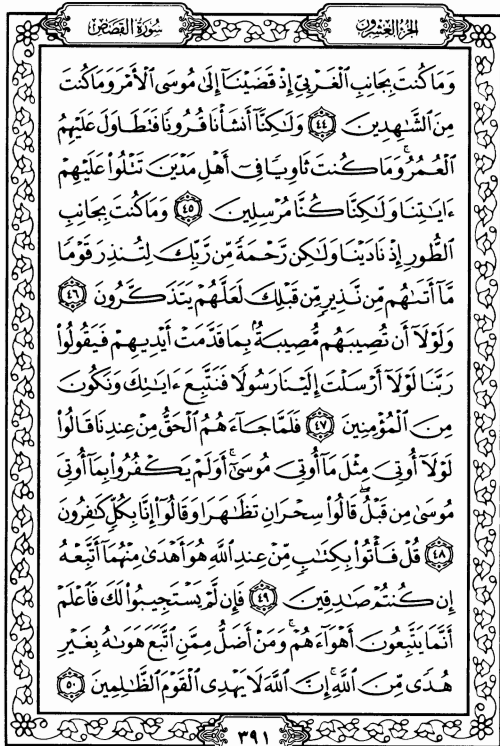 سُورَةُ القَصَصِ
الجُزْءُ العِشْرُونَ
وَمَا كُنتَ بِجَانِبِ ٱلْغَرْبِيِّ إِذْ قَضَيْنَآ إِلَىٰ مُوسَى ٱلْأَمْرَ وَمَا كُنتَ
مِنَ ٱلشَّـٰهِدِينَ ٤٤ وَلَـٰكِنَّآ أَنشَأْنَا قُرُونًا فَتَطَاوَلَ عَلَيْهِمُ
ٱلْعُمُرُ ۚ وَمَا كُنتَ ثَاوِيًا فِىٓ أَهْلِ مَدْيَنَ تَتْلُوا۟ عَلَيْهِمْ
ءَايَـٰتِنَا وَلَـٰكِنَّا كُنَّا مُرْسِلِينَ ٤٥ وَمَا كُنتَ بِجَانِبِ
ٱلطُّورِ إِذْ نَادَيْنَا وَلَـٰكِن رَّحْمَةً مِّن رَّبِّكَ لِتُنذِرَ قَوْمًا
مَّآ أَتَىٰهُم مِّن نَّذِيرٍ مِّن قَبْلِكَ لَعَلَّهُمْ يَتَذَكَّرُونَ ٤٦
وَلَوْلَآ أَن تُصِيبَهُم مُّصِيبَةٌۢ بِمَا قَدَّمَتْ أَيْدِيهِمْ فَيَقُولُوا۟
رَبَّنَا لَوْلَآ أَرْسَلْتَ إِلَيْنَا رَسُولًا فَنَتَّبِعَ ءَايَـٰتِكَ وَنَكُونَ
مِنَ ٱلْمُؤْمِنِينَ ٤٧ فَلَمَّا جَآءَهُمُ ٱلْحَقُّ مِنْ عِندِنَا قَالُوا۟
لَوْلَآ أُوتِىَ مِثْلَ مَآ أُوتِىَ مُوسَىٰٓ ۚ أَوَلَمْ يَكْفُرُوا۟ بِمَآ أُوتِىَ
مُوسَىٰ مِن قَبْلُ ۖ قَالُوا۟ سِحْرَانِ تَظَـٰهَرَا وَقَالُوٓا۟ إِنَّا بِكُلٍّ كَـٰفِرُونَ
٤٨ قُلْ فَأْتُوا۟ بِكِتَـٰبٍ مِّنْ عِندِ ٱللَّهِ هُوَ أَهْدَىٰ مِنْهُمَآ أَتَّبِعْهُ
إِن كُنتُمْ صَـٰدِقِينَ ٤٩ فَإِن لَّمْ يَسْتَجِيبُوا۟ لَكَ فَٱعْلَمْ
أَنَّمَا يَتَّبِعُونَ أَهْوَآءَهُمْ ۚ وَمَنْ أَضَلُّ مِمَّنِ ٱتَّبَعَ هَوَىٰهُ بِغَيْرِ
هُدًى مِّنَ ٱللَّهِ ۚ إِنَّ ٱللَّهَ لَا يَهْدِى ٱلْقَوْمَ ٱلظَّـٰلِمِينَ ٥٠
٣٩١